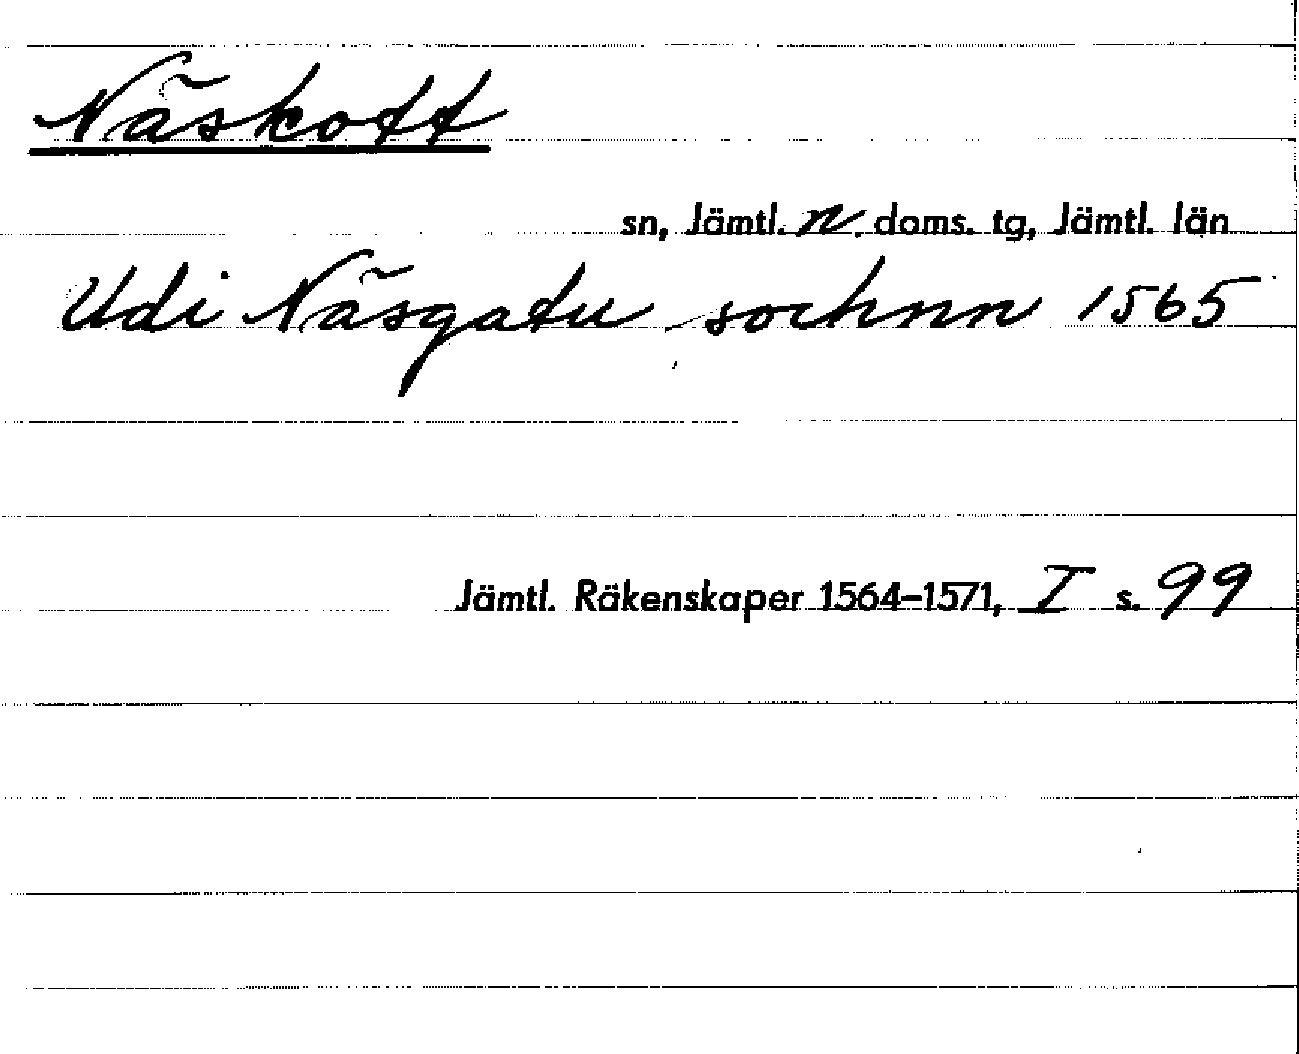 Näskott
sn, Jämtl. n. doms. tg, Jämtl. län
Udi Näsgatu sochnn 1565
Jämtl. Räkenskaper 1564–1571, I s. 99